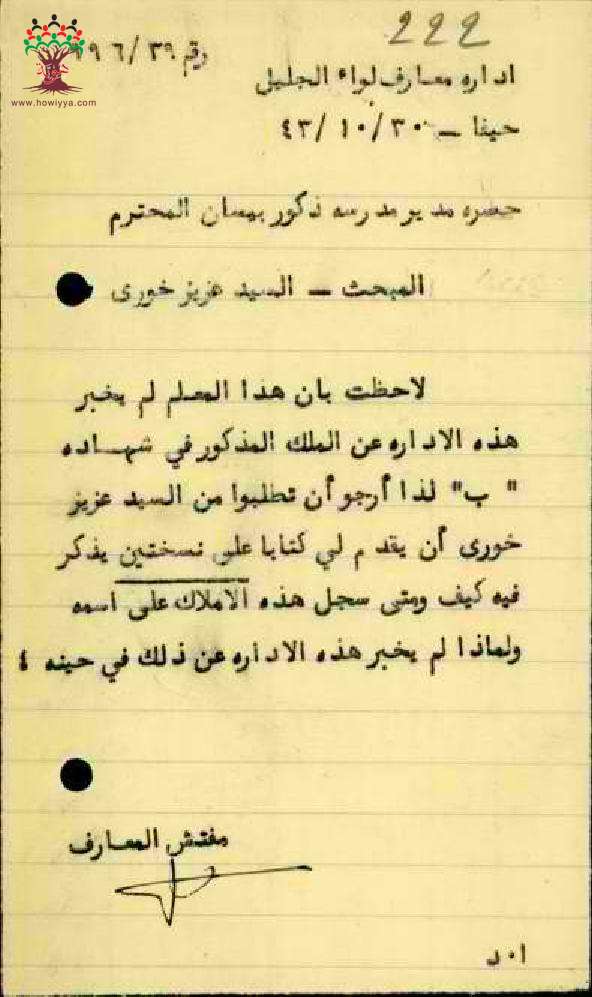 222
رقم ٩٩٦/٣٩
www.howiyya.com
اداره معارف لواء الجليل
حيفا – ٤٣/١٠/٣٠
حضره مدير مدرسه ذكور بيسان المحترم
المبحث – السيد عزيز خورى
لاحظت بان هذا المعلم لم يخبر
هذه الاداره عن الملك المذكور في شهاده
" ب" لذا أرجو أن تطلبوا من السيد عزيز
خورى أن يقدم لي كتابا على نسختين يذكر
فيه كيف ومتى سجل هذه الاملاك على اسمه
ولماذا لم يخبر هذه الاداره عن ذلك في حينه ؟
مفتش المعارف
ا٠د